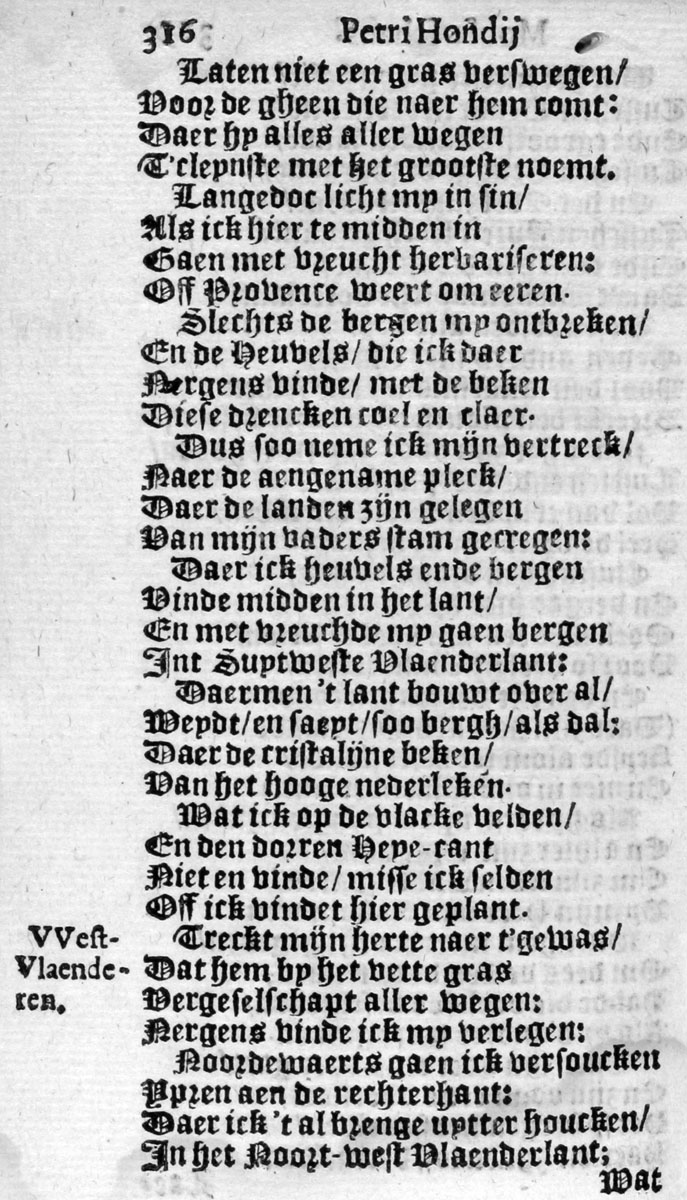 316 Petri Hondij
Laten niet een gras verswegen/
Voor de gheen die naer hem comt:
Daer hy alles aller wegen
T'cleynste met het grootste noemt.
Langedoc licht my in sin/
Als ick hier te midden in
Gaen met vreucht herbariseren:
Off Provence weert om eeren.
Slechts de bergen my ontbreken/
En de Heuvels/ die ick daer
Nergens vinde/ met de beken
Diese drencken coel en claer.
Dus soo neme ick mijn vertreck/
Naer de aengename pleck/
Daer de landen zijn gelegen
Van mijn vaders stam gecregen:
Daer ick heuvels ende bergen
Vinde midden in het lant/
En met vreuchde my gaen bergen
Int Suytweste Vlaenderlant:
Daermen 't lant bouwt over al/
Weydt/en saeyt/soo bergh/als dal:
Daer de cristalijne beken/
Van het hooge nederleken.
Wat ick op de vlacke velden/
En den dorren Heye-cant
Niet en vinde/ misse ick selden
Off ick vindet hier geplant.
VVest-
Vlaende-
ren.
Treckt mijn herte naer t'gewas/
Dat hem by het vette gras
Vergeselschapt aller wegen:
Nergens vinde ick my verlegen:
Noordewaerts gaen ick versoucken
Ypren aen de rechterhant:
Daer ick 't al brenge uytter houcken/
In het Noort-west Vlaenderlant;
Wat